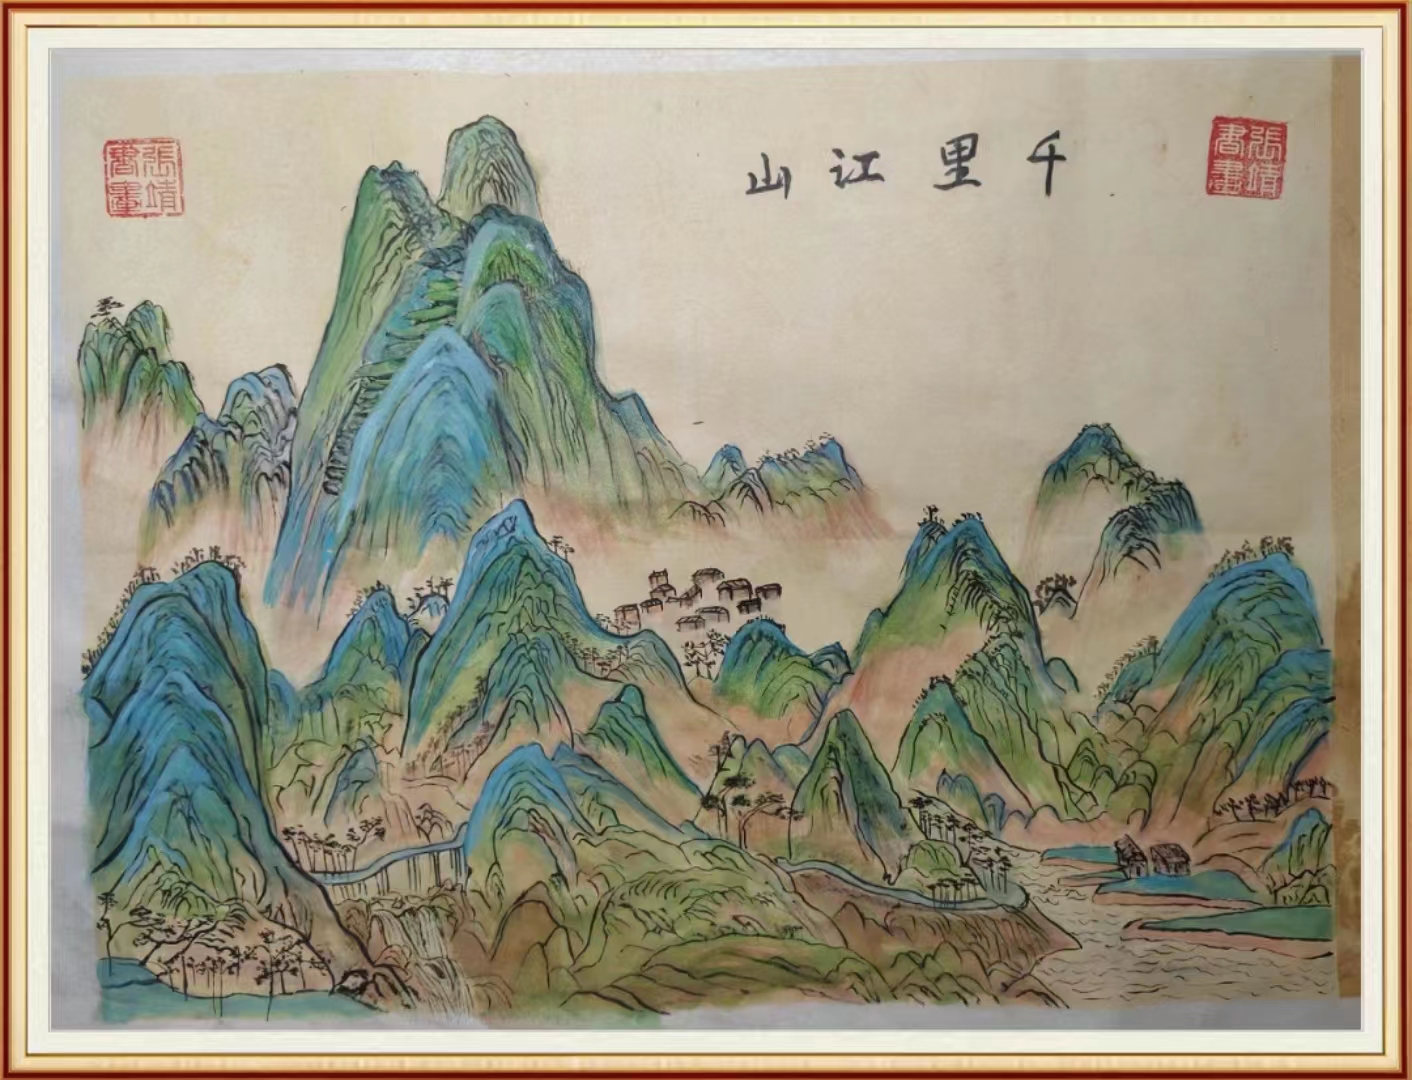 張靖
書畫
千里江山
張靖
書畫